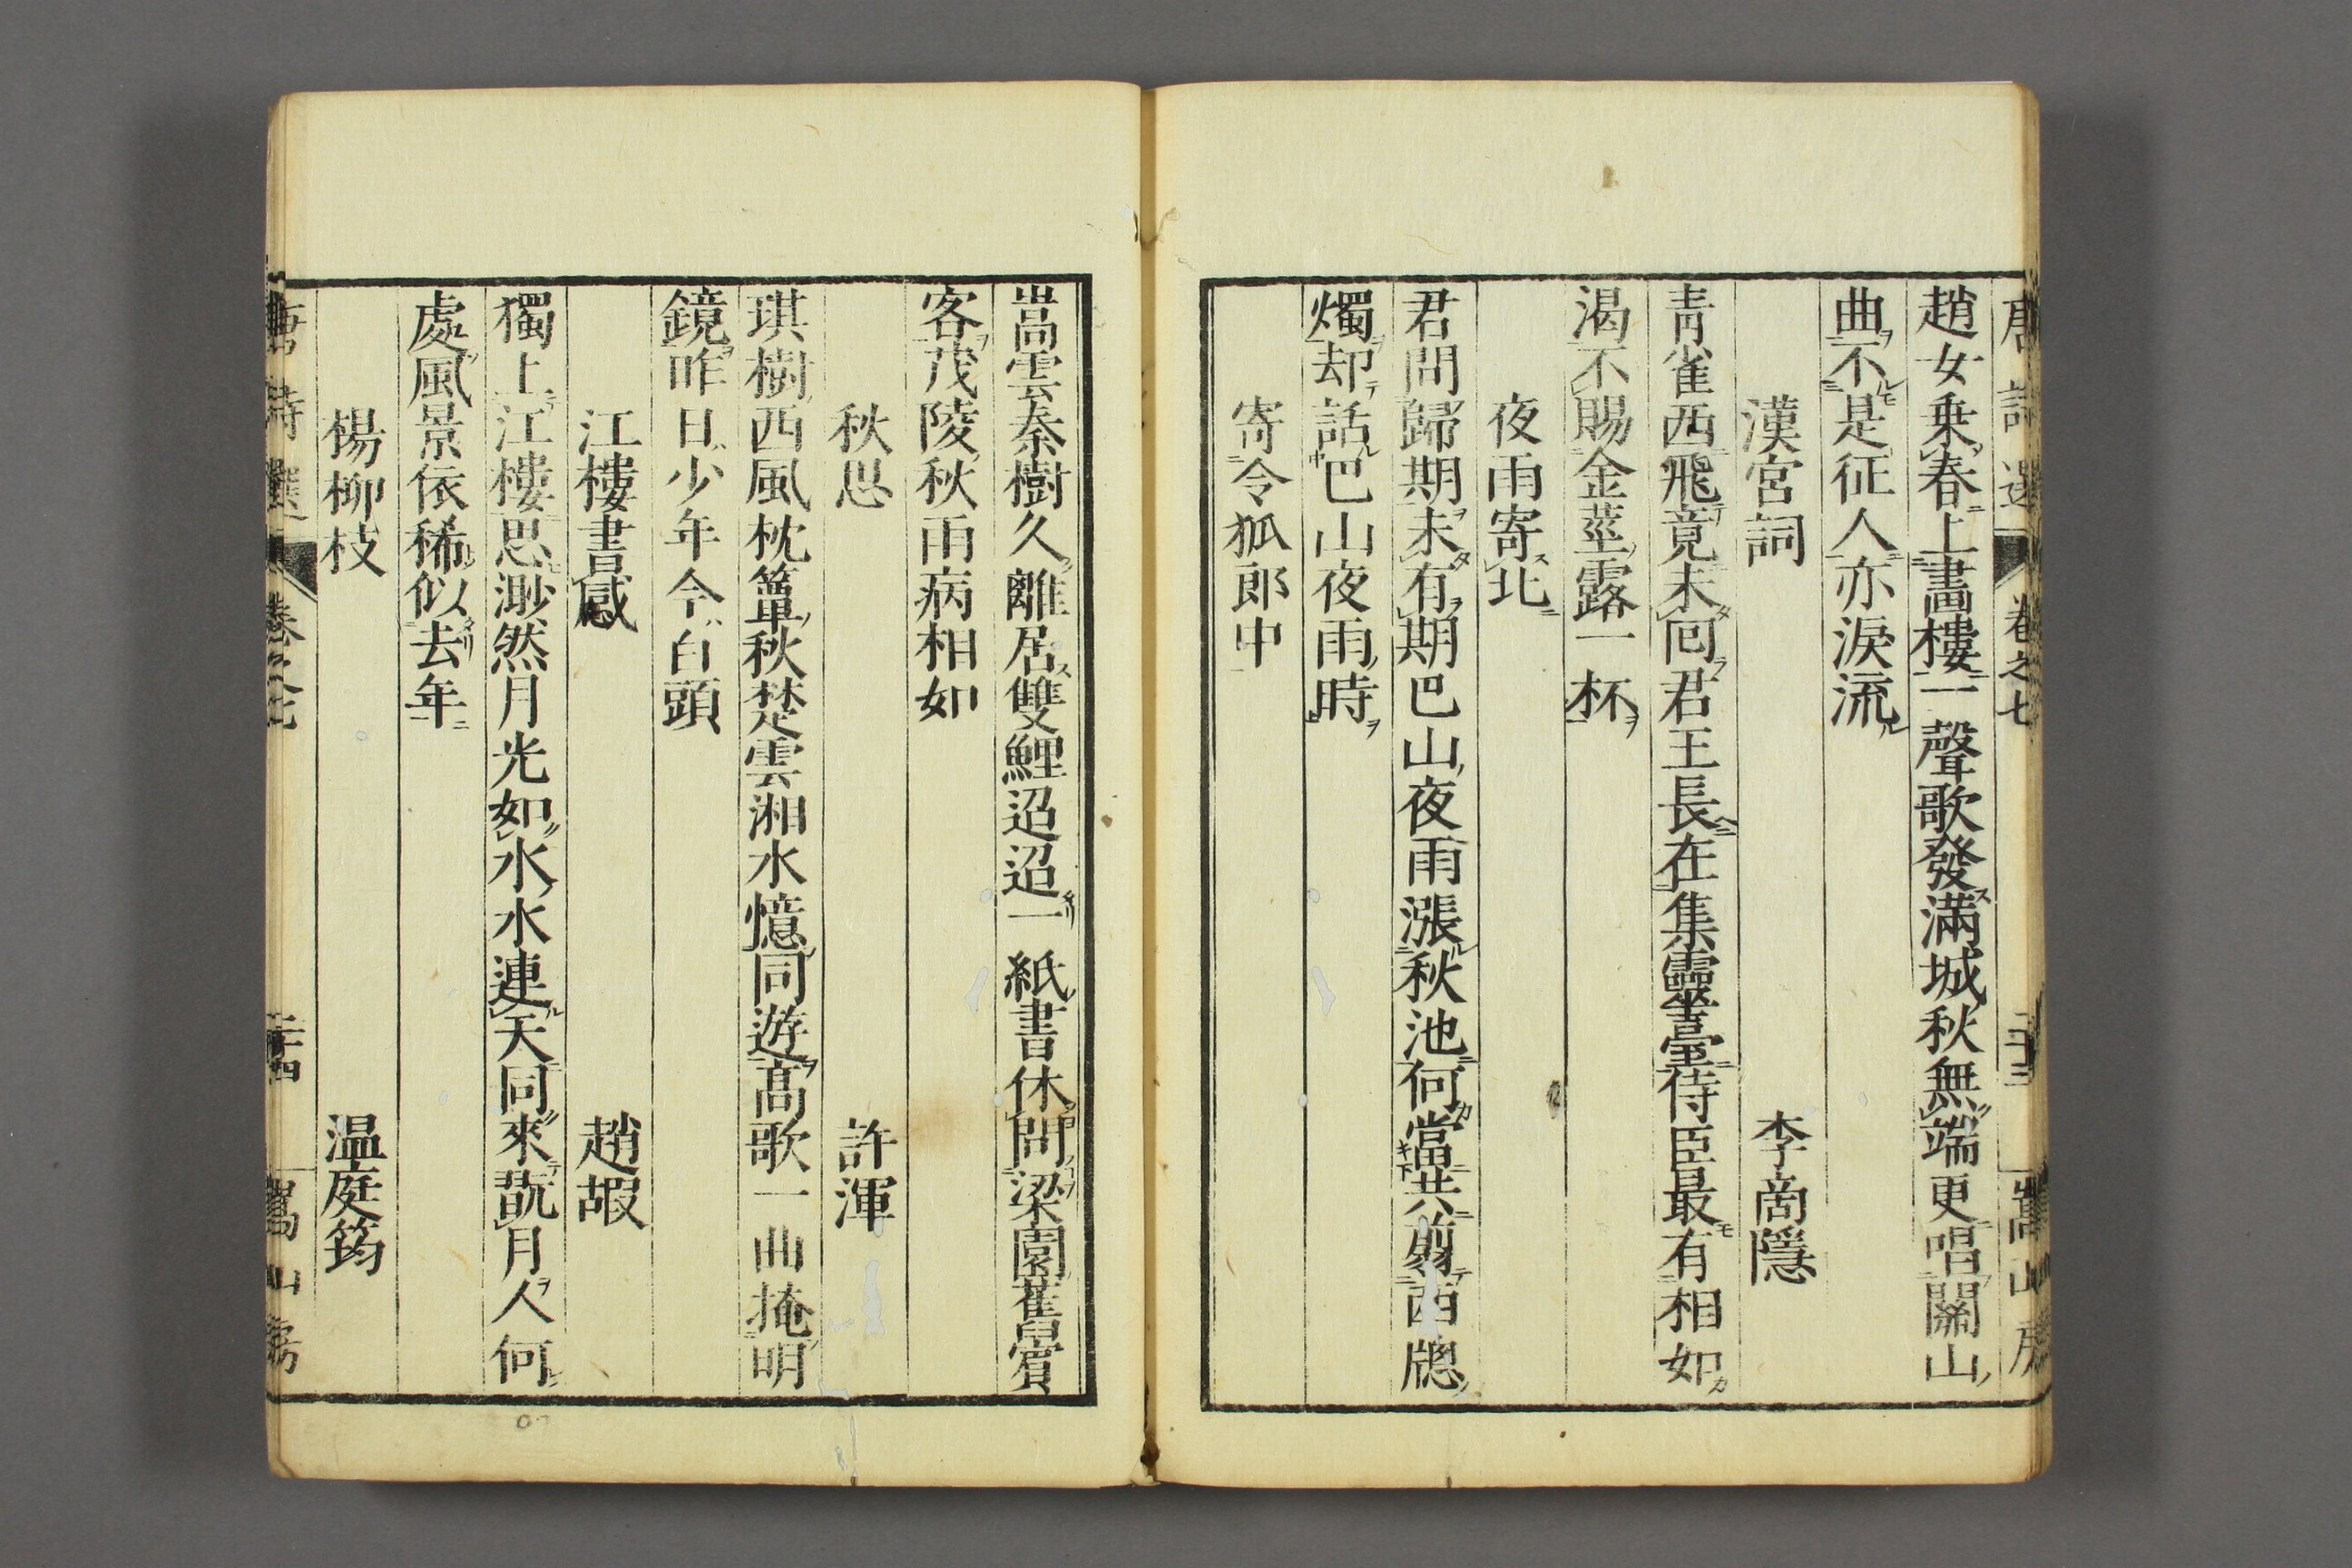 唐詩選 卷之七 二十三 嵩山房
趙女乗春上畫樓一聲歌發滿城秋無端更唱關山
曲不是征人亦淚流
漢宮詞 李商隱
青雀西飛竟未囘君王長在集靈臺侍臣最有相如
渴不賜金莖露一杯
夜雨寄北
君問歸期未有期巴山夜雨漲秋池何當共剪西牕
燭却話巴山夜雨時
寄令狐郎中
嵩雲秦樹久離居雙鯉迢迢一紙書休問梁園舊賓
客茂陵秋雨病相如
秋思 許渾
琪樹西風枕簟秋楚雲湘水憶同遊高歌一曲掩明
鏡昨日少年今白頭
江樓書感 趙嘏
獨上江樓思渺然月光如水水連天同來翫月人何
處風景依稀似去年
楊柳枝 温庭筠
唐詩選 卷之七 二十四 嵩山房